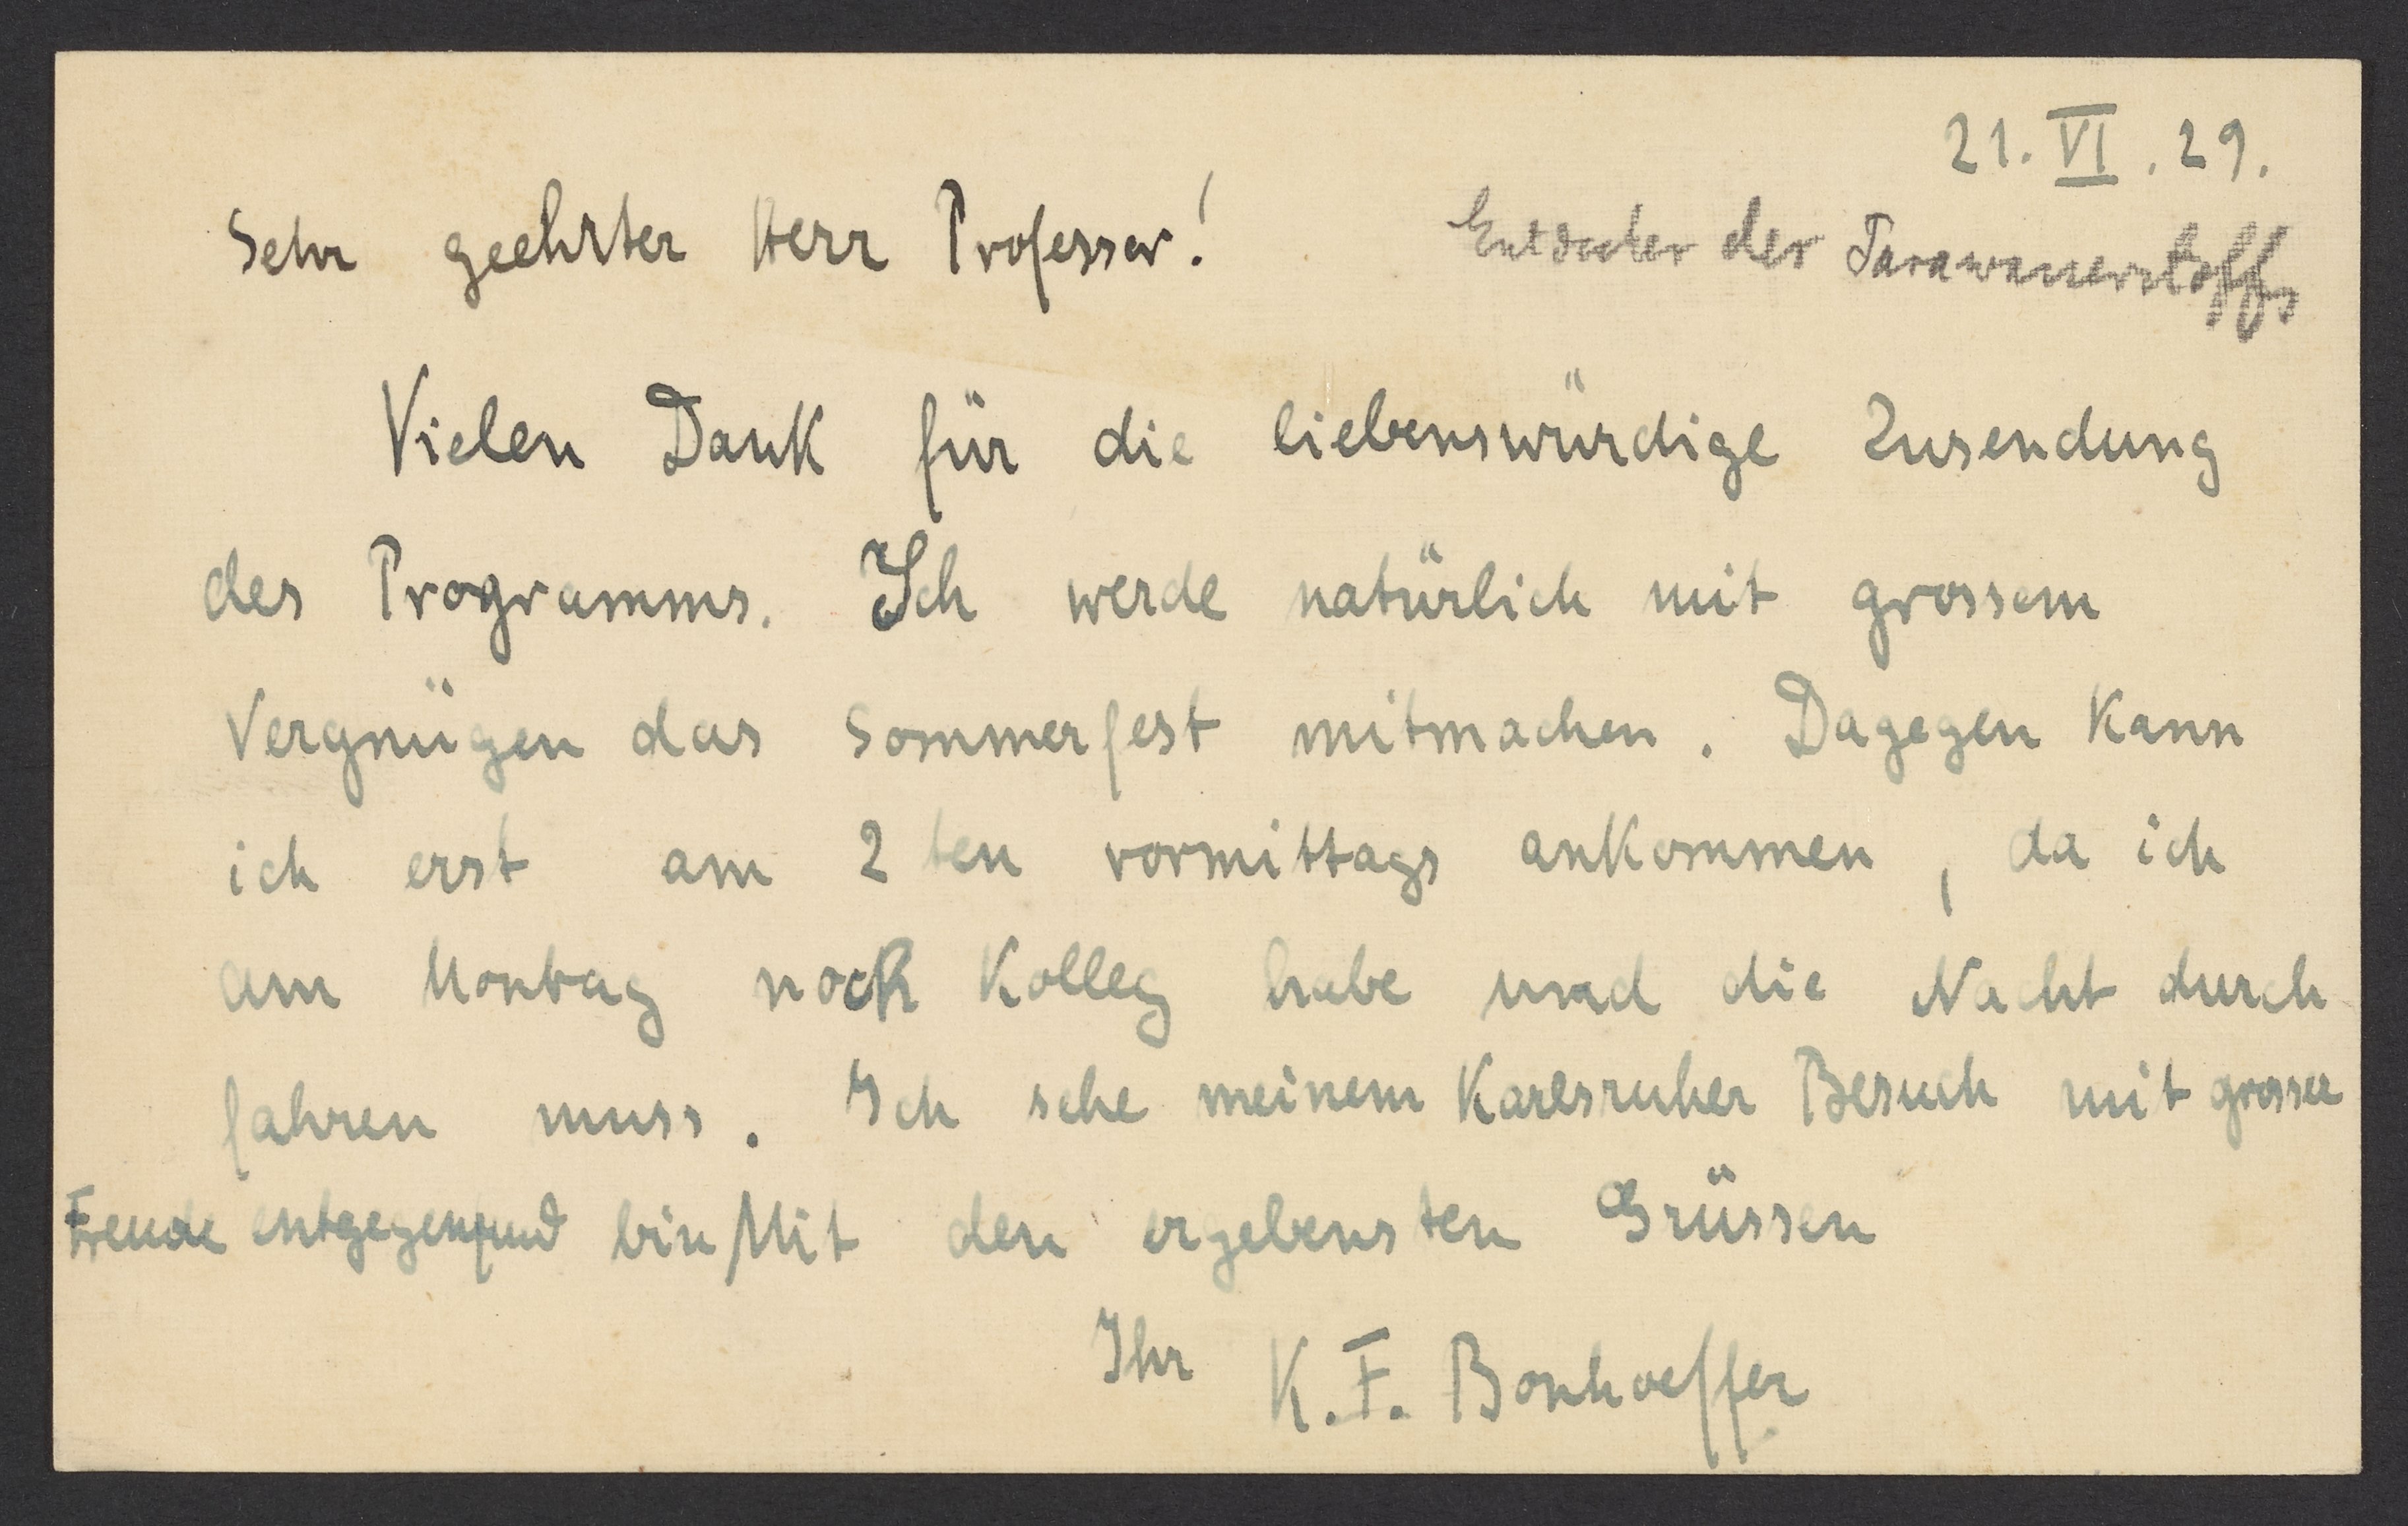 21. VI. 29.
Sehr geehrter Herr Professor!
Entdecker des Parawasserstoffs
Vielen Dank für die liebenswürdige Zusendung
des Programms. Ich werde natürlich mit grossem
Vergnügen das Sommerfest mitmachen. Dagegen kann
ich erst am 2ten vormittags ankommen, da ich
am Montag noch Kolleg habe und die Nacht durch
fahren muss. Ich sehe meinem Karlsruher Besuch mit grosser
Freude entgegen und bin Mit den ergebensten Grüssen
Ihr K. F. Bonhoeffer